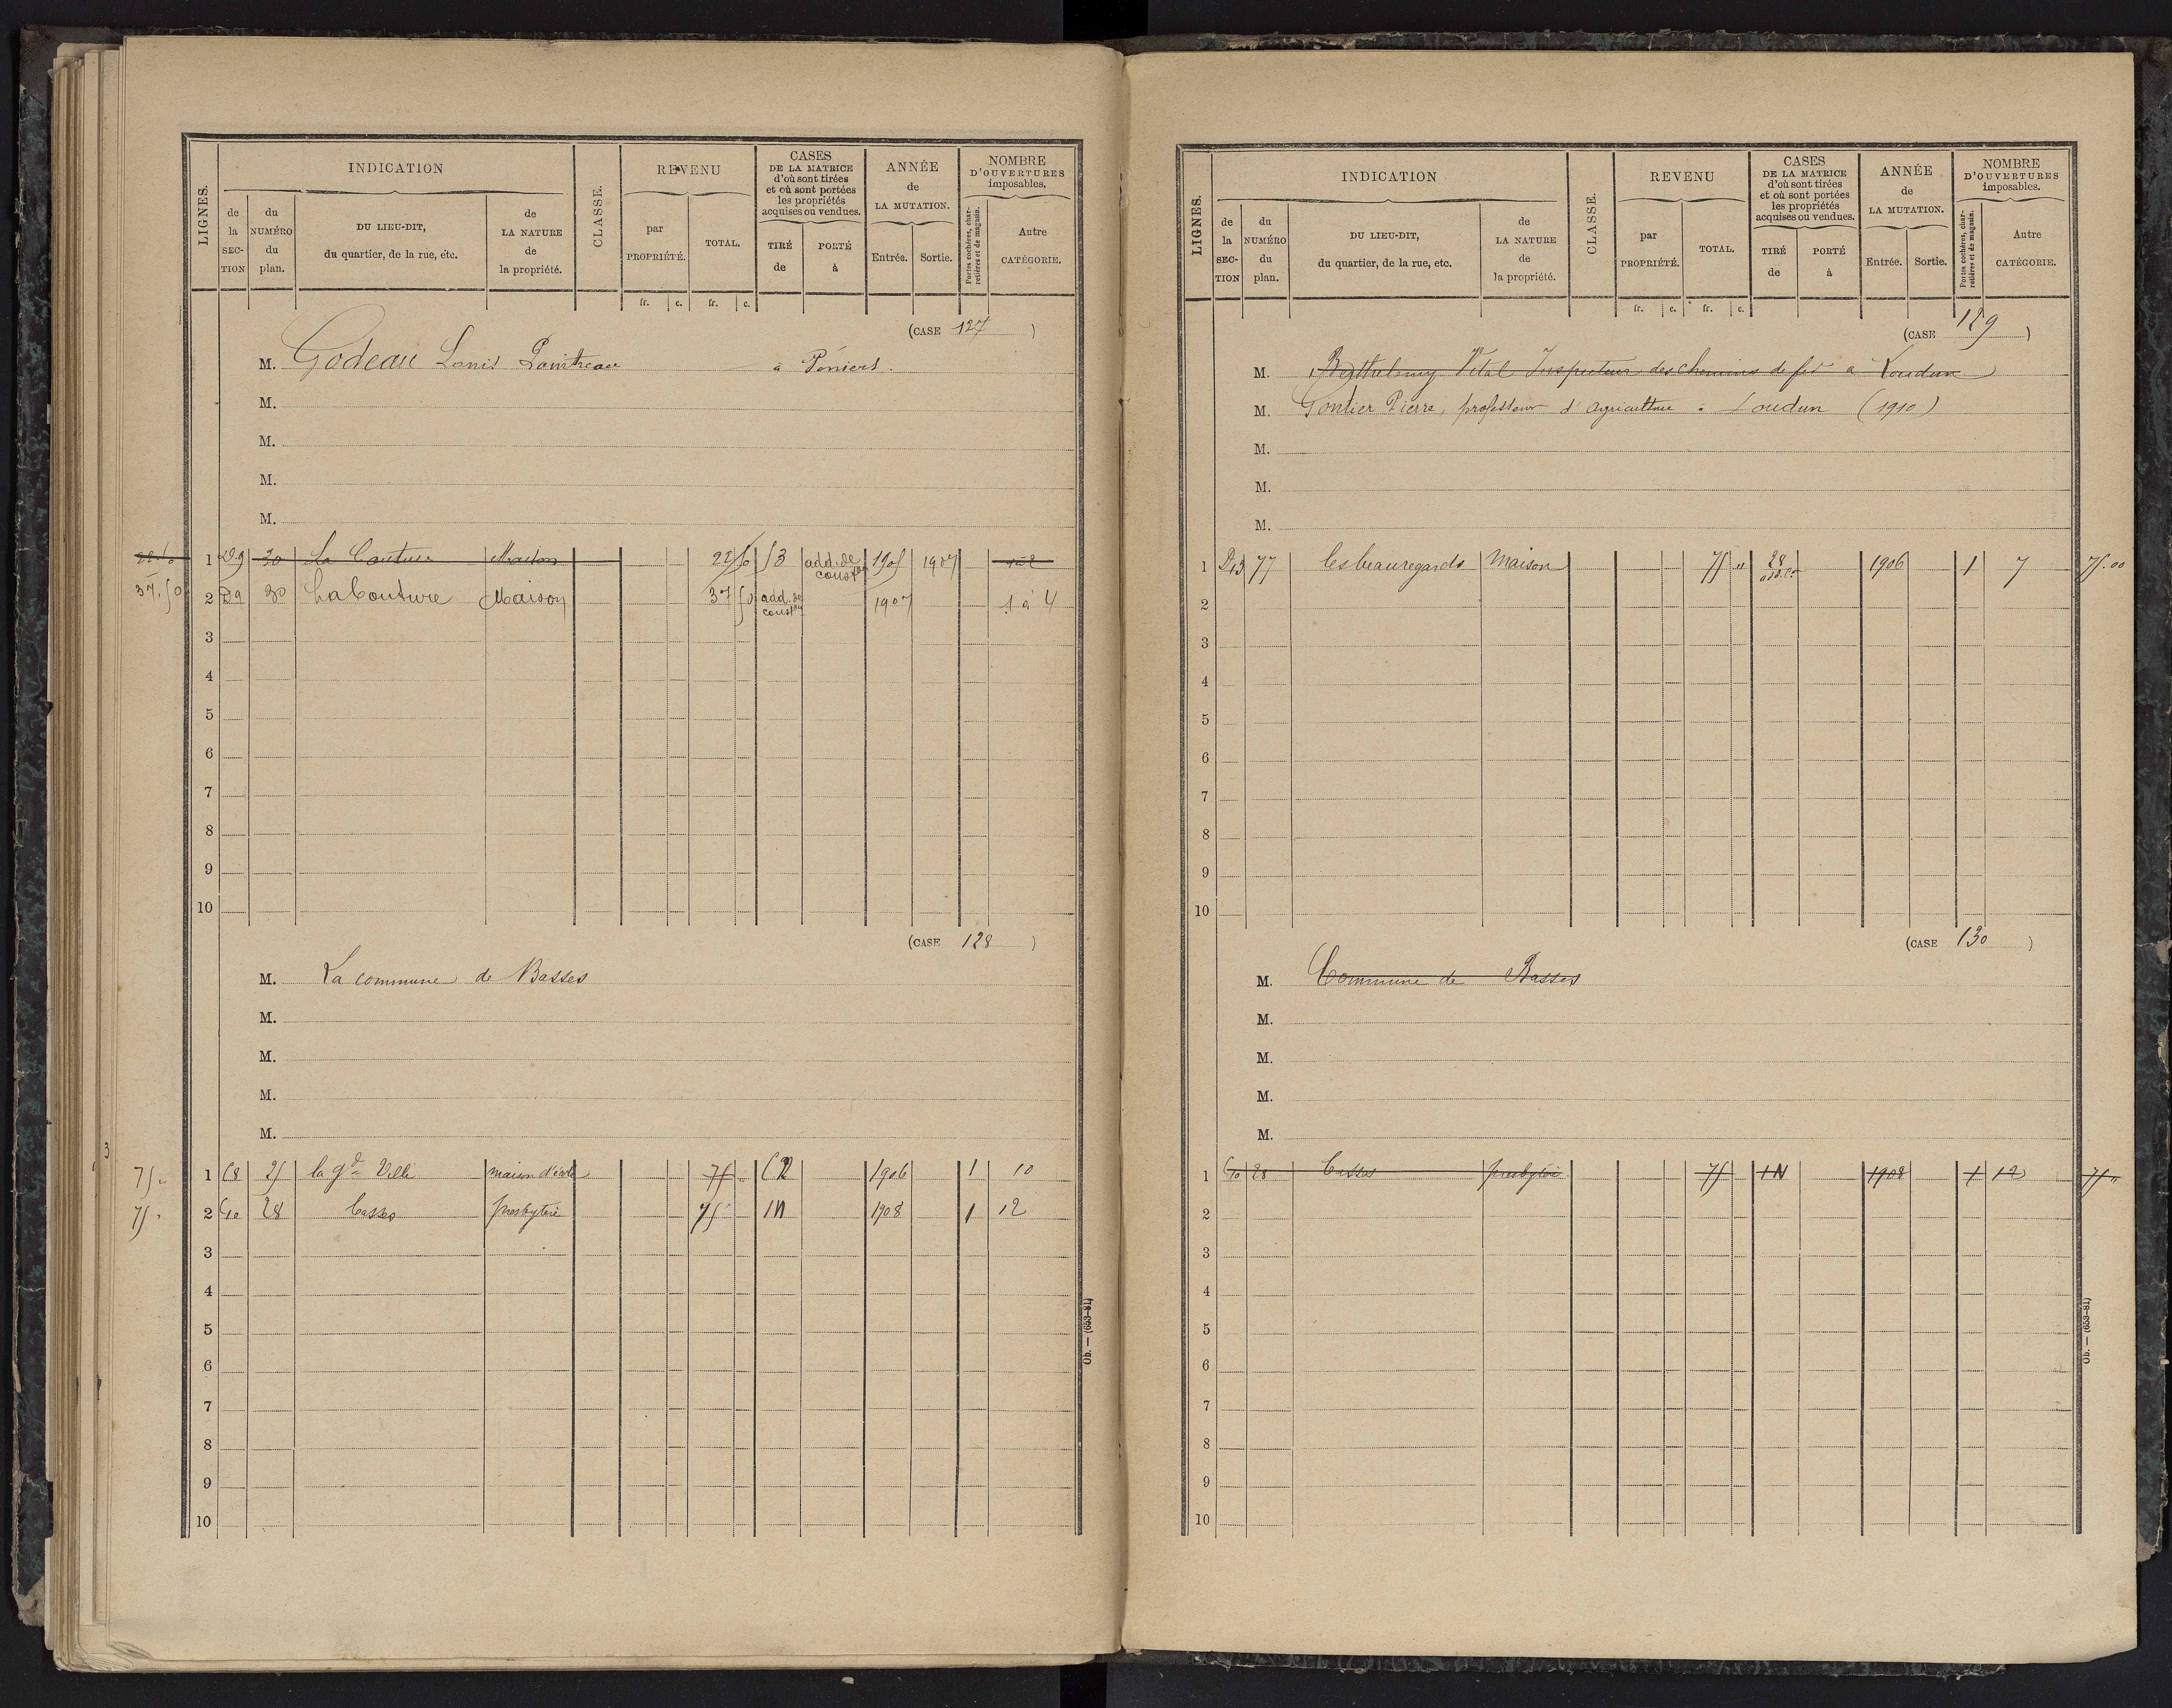 LIGNES. INDICATION CLASSE. REVENU CASES DE LA MATRICE d'où sont tirées et où sont portées les propriétés acquises ou vendues. ANNÉE de LA MUTATION. NOMBRE D'OUVERTURES imposables.
de la SECTION du NUMÉRO du plan. DU LIEU-DIT, du quartier, de la rue, etc. de LA NATURE de la propriété. par PROPRIÉTÉ. TOTAL. TIRÉ de PORTÉ à Entrée. Sortie. Portes cochères, charretières et de magasin. Autre CATÉGORIE.
fr. c. fr. c.
(CASE 127 )
M. Godeau Louis à
M.
M.
M.
M.
1 D9 30 La Couture Maison 22 50 53 add. de conston 1905 1907 1 à 2
37.50 2 D9 30 La Couture Maison 37 50 add. de conston 1907 1 à 4
3
4
5
6
7
8
9
10
(CASE 128 )
M. La commune de Basses
M.
M.
M.
M.
75 " 1 C8 25 la gde Ville maison d'école 75 " 1906 1 10
75 " 2 28 Casses presbytère 75 " 1N 1908 1 12
3
4
5
6
7
8
9
10
Ob. — (653-81)
LIGNES. INDICATION CLASSE. REVENU CASES DE LA MATRICE d'où sont tirées et où sont portées les propriétés acquises ou vendues. ANNÉE de LA MUTATION. NOMBRE D'OUVERTURES imposables.
de la SECTION du NUMÉRO du plan. DU LIEU-DIT, du quartier, de la rue, etc. de LA NATURE de la propriété. par PROPRIÉTÉ. TOTAL. TIRÉ de PORTÉ à Entrée. Sortie. Portes cochères, charretières et de magasin. Autre CATÉGORIE.
fr. c. fr. c.
(CASE 129 )
M. Berthelemy Vital Inspecteur des chemins de fer à Loudun
M. Gontier Pierre, professeur d'agriculture à Loudun (1910)
M.
M.
M.
1 D13 77 les beauregards Maison 75 " 28 1906 1 7 75.00
2
3
4
5
6
7
8
9
10
(CASE 130 )
M. Commune de Basses
M.
M.
M.
M.
1 28 Casses presbytère 75 1N 1908 1 12 75 "
2
3
4
5
6
7
8
9
10
Ob. — (653-81)